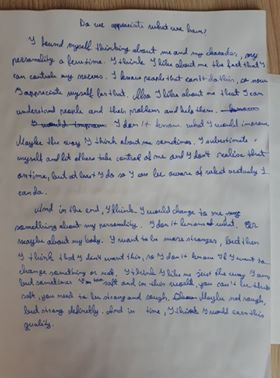 Do we appreciate what we have?
I found myself thinking about me and my character, my
personality a few time. I think I like about me the fact that I
can controle my nerves. I know people that can't do this, so now
I appreciate myself for that. Also I like about me that I can
understand people and their problems and help them.
I don't know what I would improve.
Maybe the way I think about me sometimes. I subestimate
myself and let others take control of me and I don't realise that
on time, but at least I do so I am be aware of what actualy I
can do.
And in the end, I think I would change to me
something about my personality. I don't know what. Or
maybe about my body. I want to be more stronger, but then
I think that I don't want this, so I don't know if I want to
change something or not. I think I like me just the way I am
but sometimes I'm soft and in this world, you can't be
soft, you need to be strong and tough. Maybe not tough,
but strong definetly. And in time, I think I would earn this
quality.